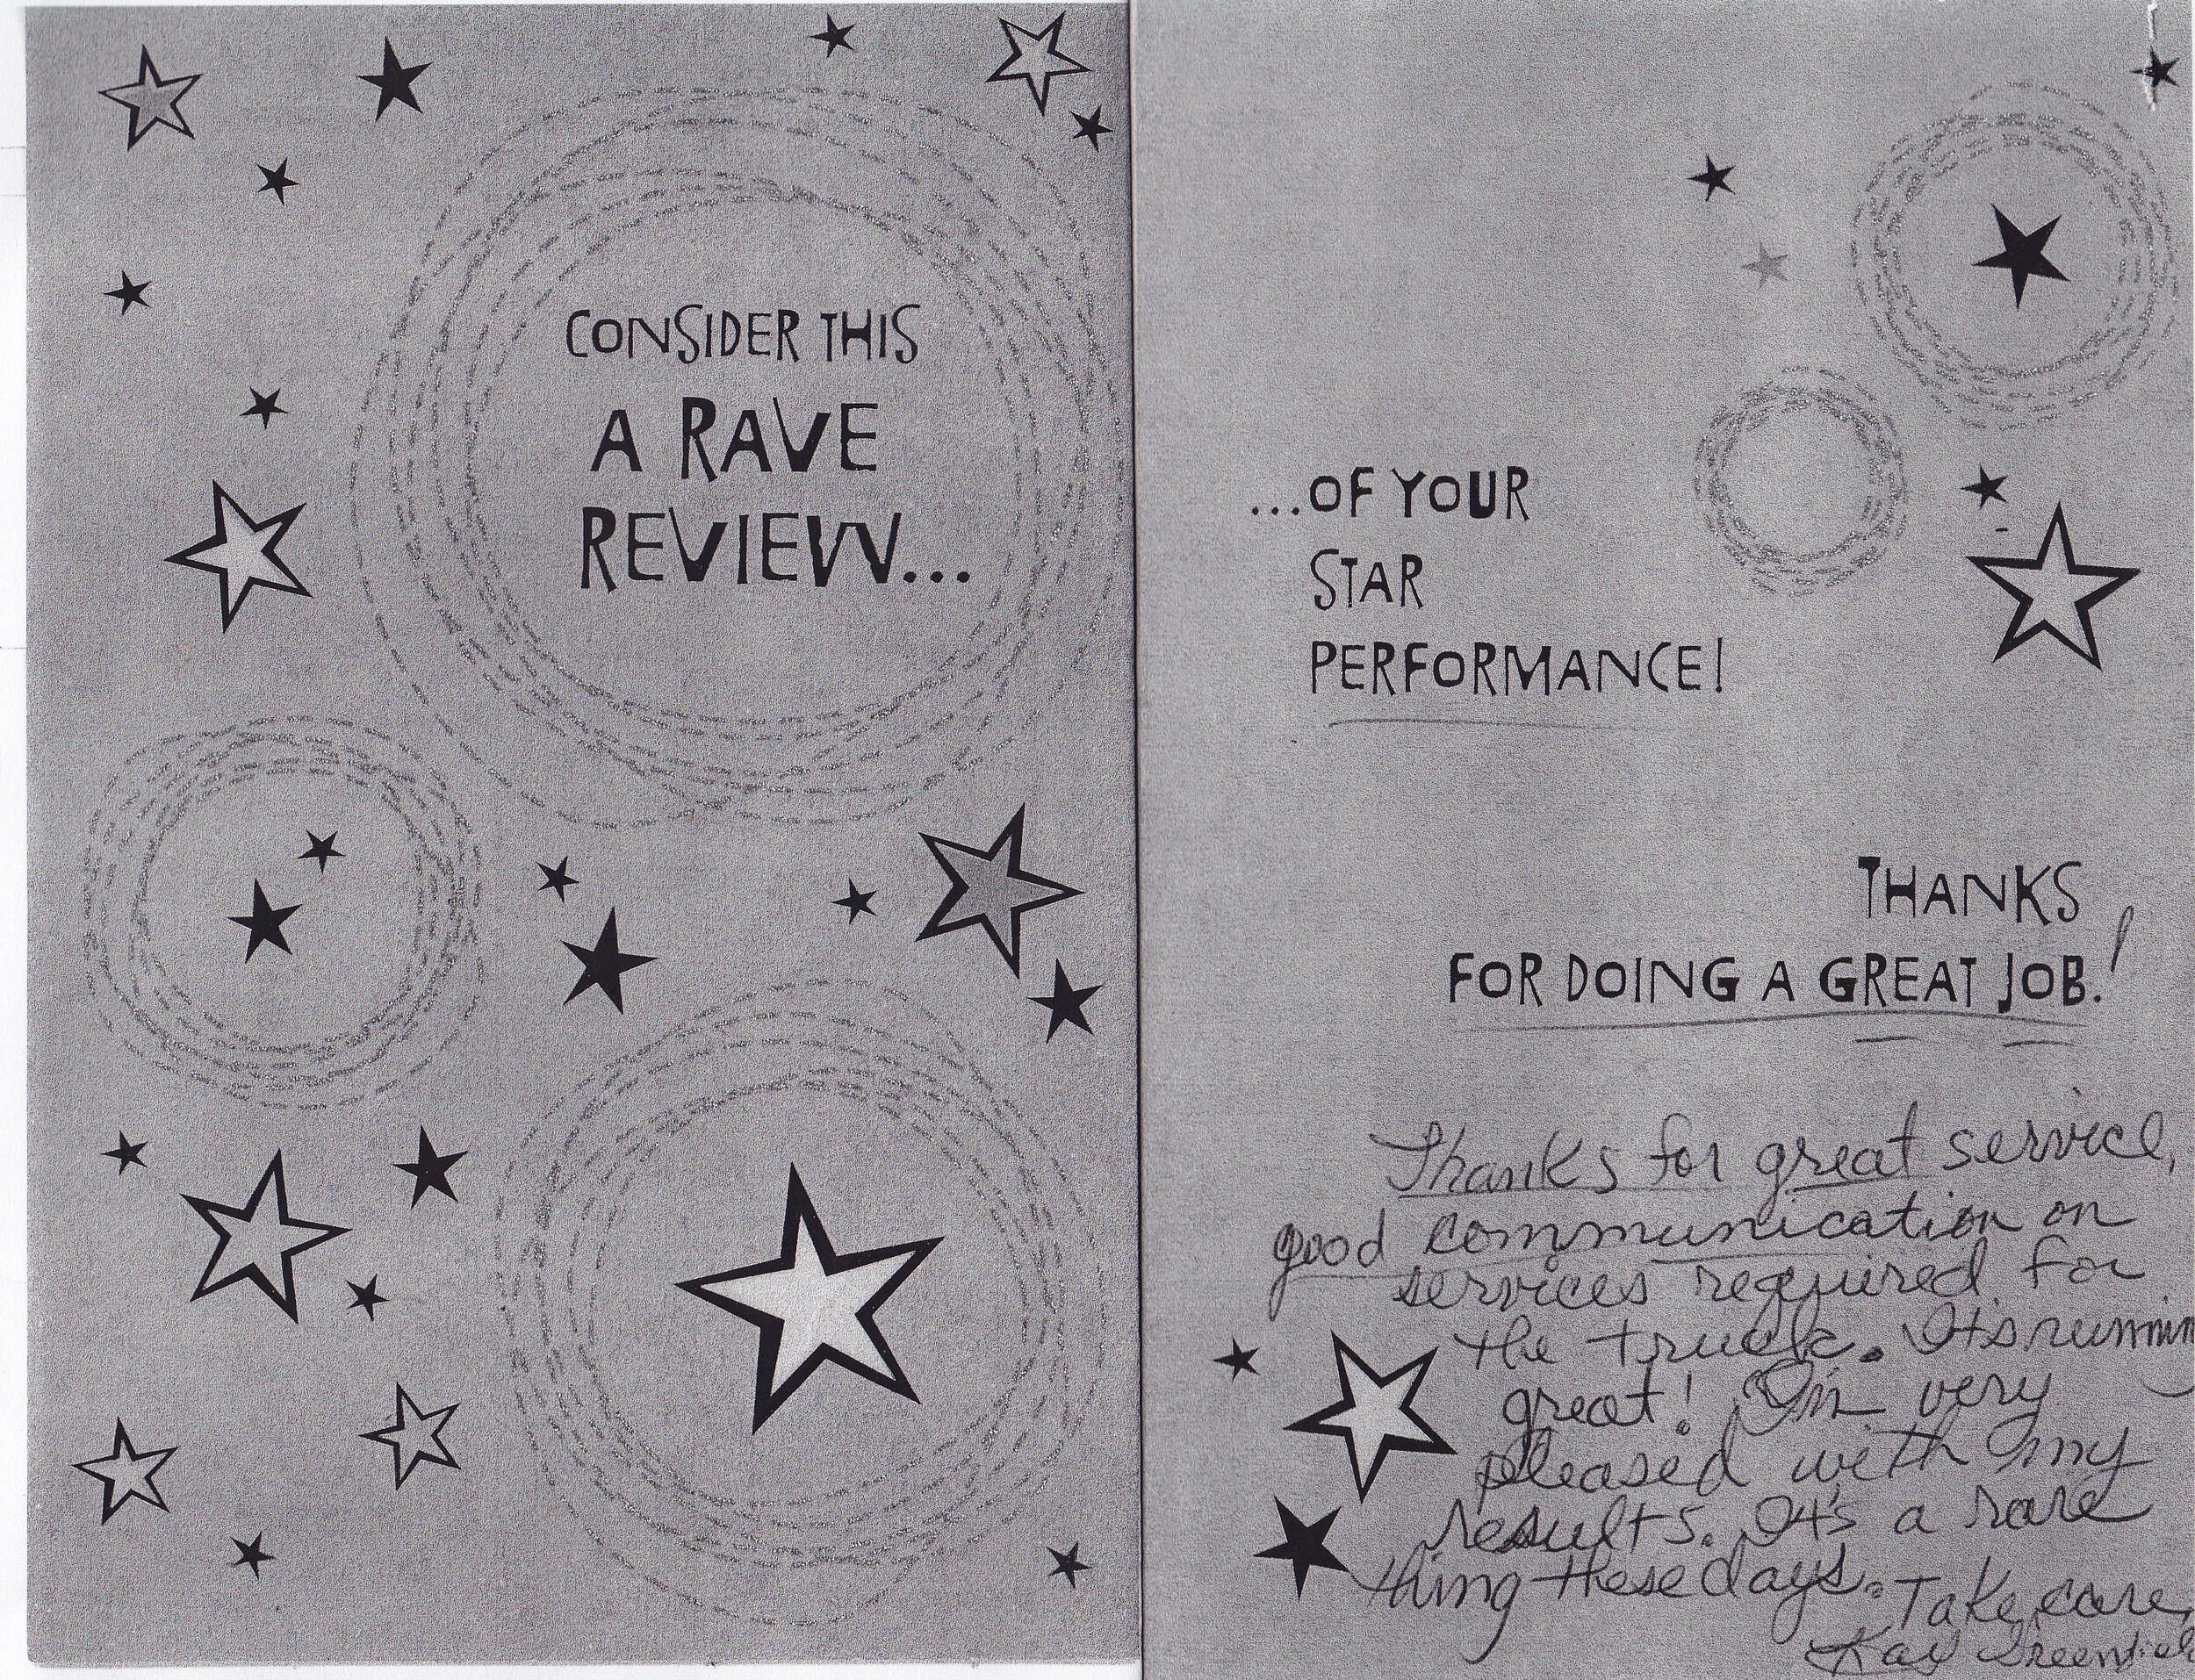 CONSIDER THIS
A RAVE
REVIEW...
...OF YOUR
STAR
PERFORMANCE!
THANKS
FOR DOING A GREAT JOB.!
Thanks for great service,
good communication on
services required for
the truck. Its runnin
great! I'm very
pleased with my
results. It's a rare
thing these days.
Take care,
Kay